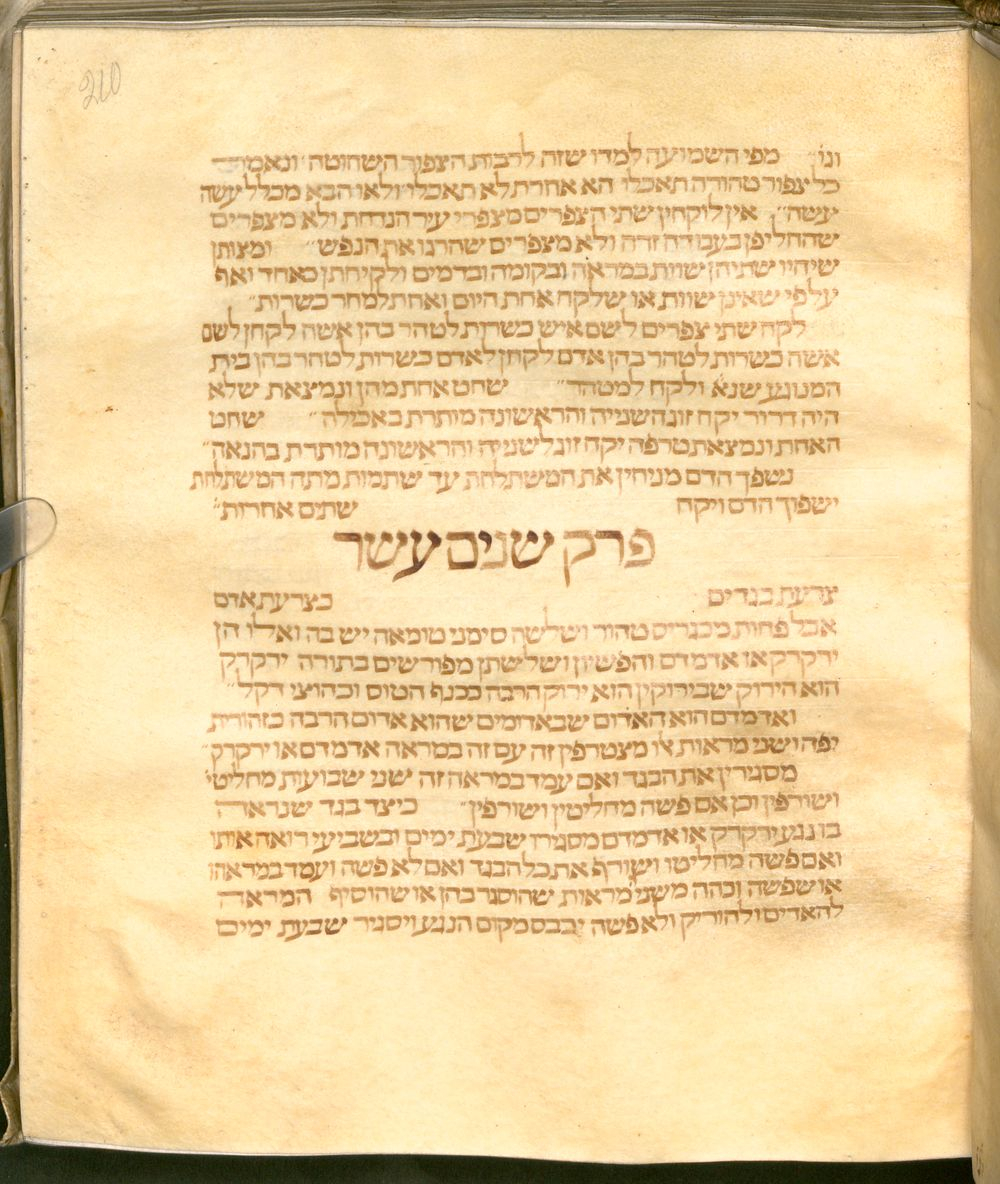 210
וגו׳ מפי השמועה למדו שזה לרבות הצפור השחוטה ונאמר
כל צפור טהורה תאכלו הא אחרת לא תאכלו ולאו הבא מכלל עשה
עשה״ אין לוקחין שתי הצפרים מצפרי עיר הנדחת ולא מצפרים
שהחליפן בעבודה זרה ולא מצפרים שהרגו את הנפש״ ומצותן
שיהיו שתיהן שוות במראה ובקומה ובדמים ולקיחתן כאחד ואף
על פי שאינן שוות או שלקח אחת היום ואחת למחר כשרות״
לקח שתי צפרים לשם איש כשרות לטהר בהן אשה לקחן לשם
אשה כשרות לטהר בהן אדם לקחן לאדם כשרות לטהר בהן בית
המנוגע שנא׳ ולקח למטהר״ שחט אחת מהן ונמצאת שלא
היה דרור יקח זוג השנייה והראשונה מותרת באכילה״ שחט
האחת ונמצאת טרפה יקח זוג לשנייה והראשונה מותרת בהנאה״
נשפך הדם מניחין את המשתלחת עד שתמות מתה המשתלחת
ישפוך הדם ויקח שתים אחרות״
פרק שנים עשר
צרעת בגדים כצרעת אדם
אבל פחות מכגריס טהור ושלשה סימני טומאה יש בה ואלו הן
ירקרק או אדמדם והפשיון ושלשתן מפורשים בתורה ירקרק
הוא הירוק שבירוקין הוא ירוק הרבה ככנף הטוס וכהוצי דקל״
ואדמדם הוא האדום שבאדומים שהוא אדום הרבה כזהורית
יפה ושני מראות אלו מצטרפין זה עם זה במראה אדמדם או ירקרק״
מסגירין את הבגד ואם עמד במראה זה שני שבועות מחליטי׳
ושורפין וכן אם פשה מחליטין ושורפין״ כיצד בגד שנראה
בו נגע ירקרק או אדמדם מסגירו שבעת ימים ובשביעי רואה אותו
ואם פשה מחליטו ושורף את כל הבגד ואם לא פשה ועמד במראהו
או שפשה וכהה משני מראות שהוסגר בהן או שהוסיף המראה
להאדים ולהוריק ולא פשה יכבס מקום הנגע ויסגיר שבעת ימים